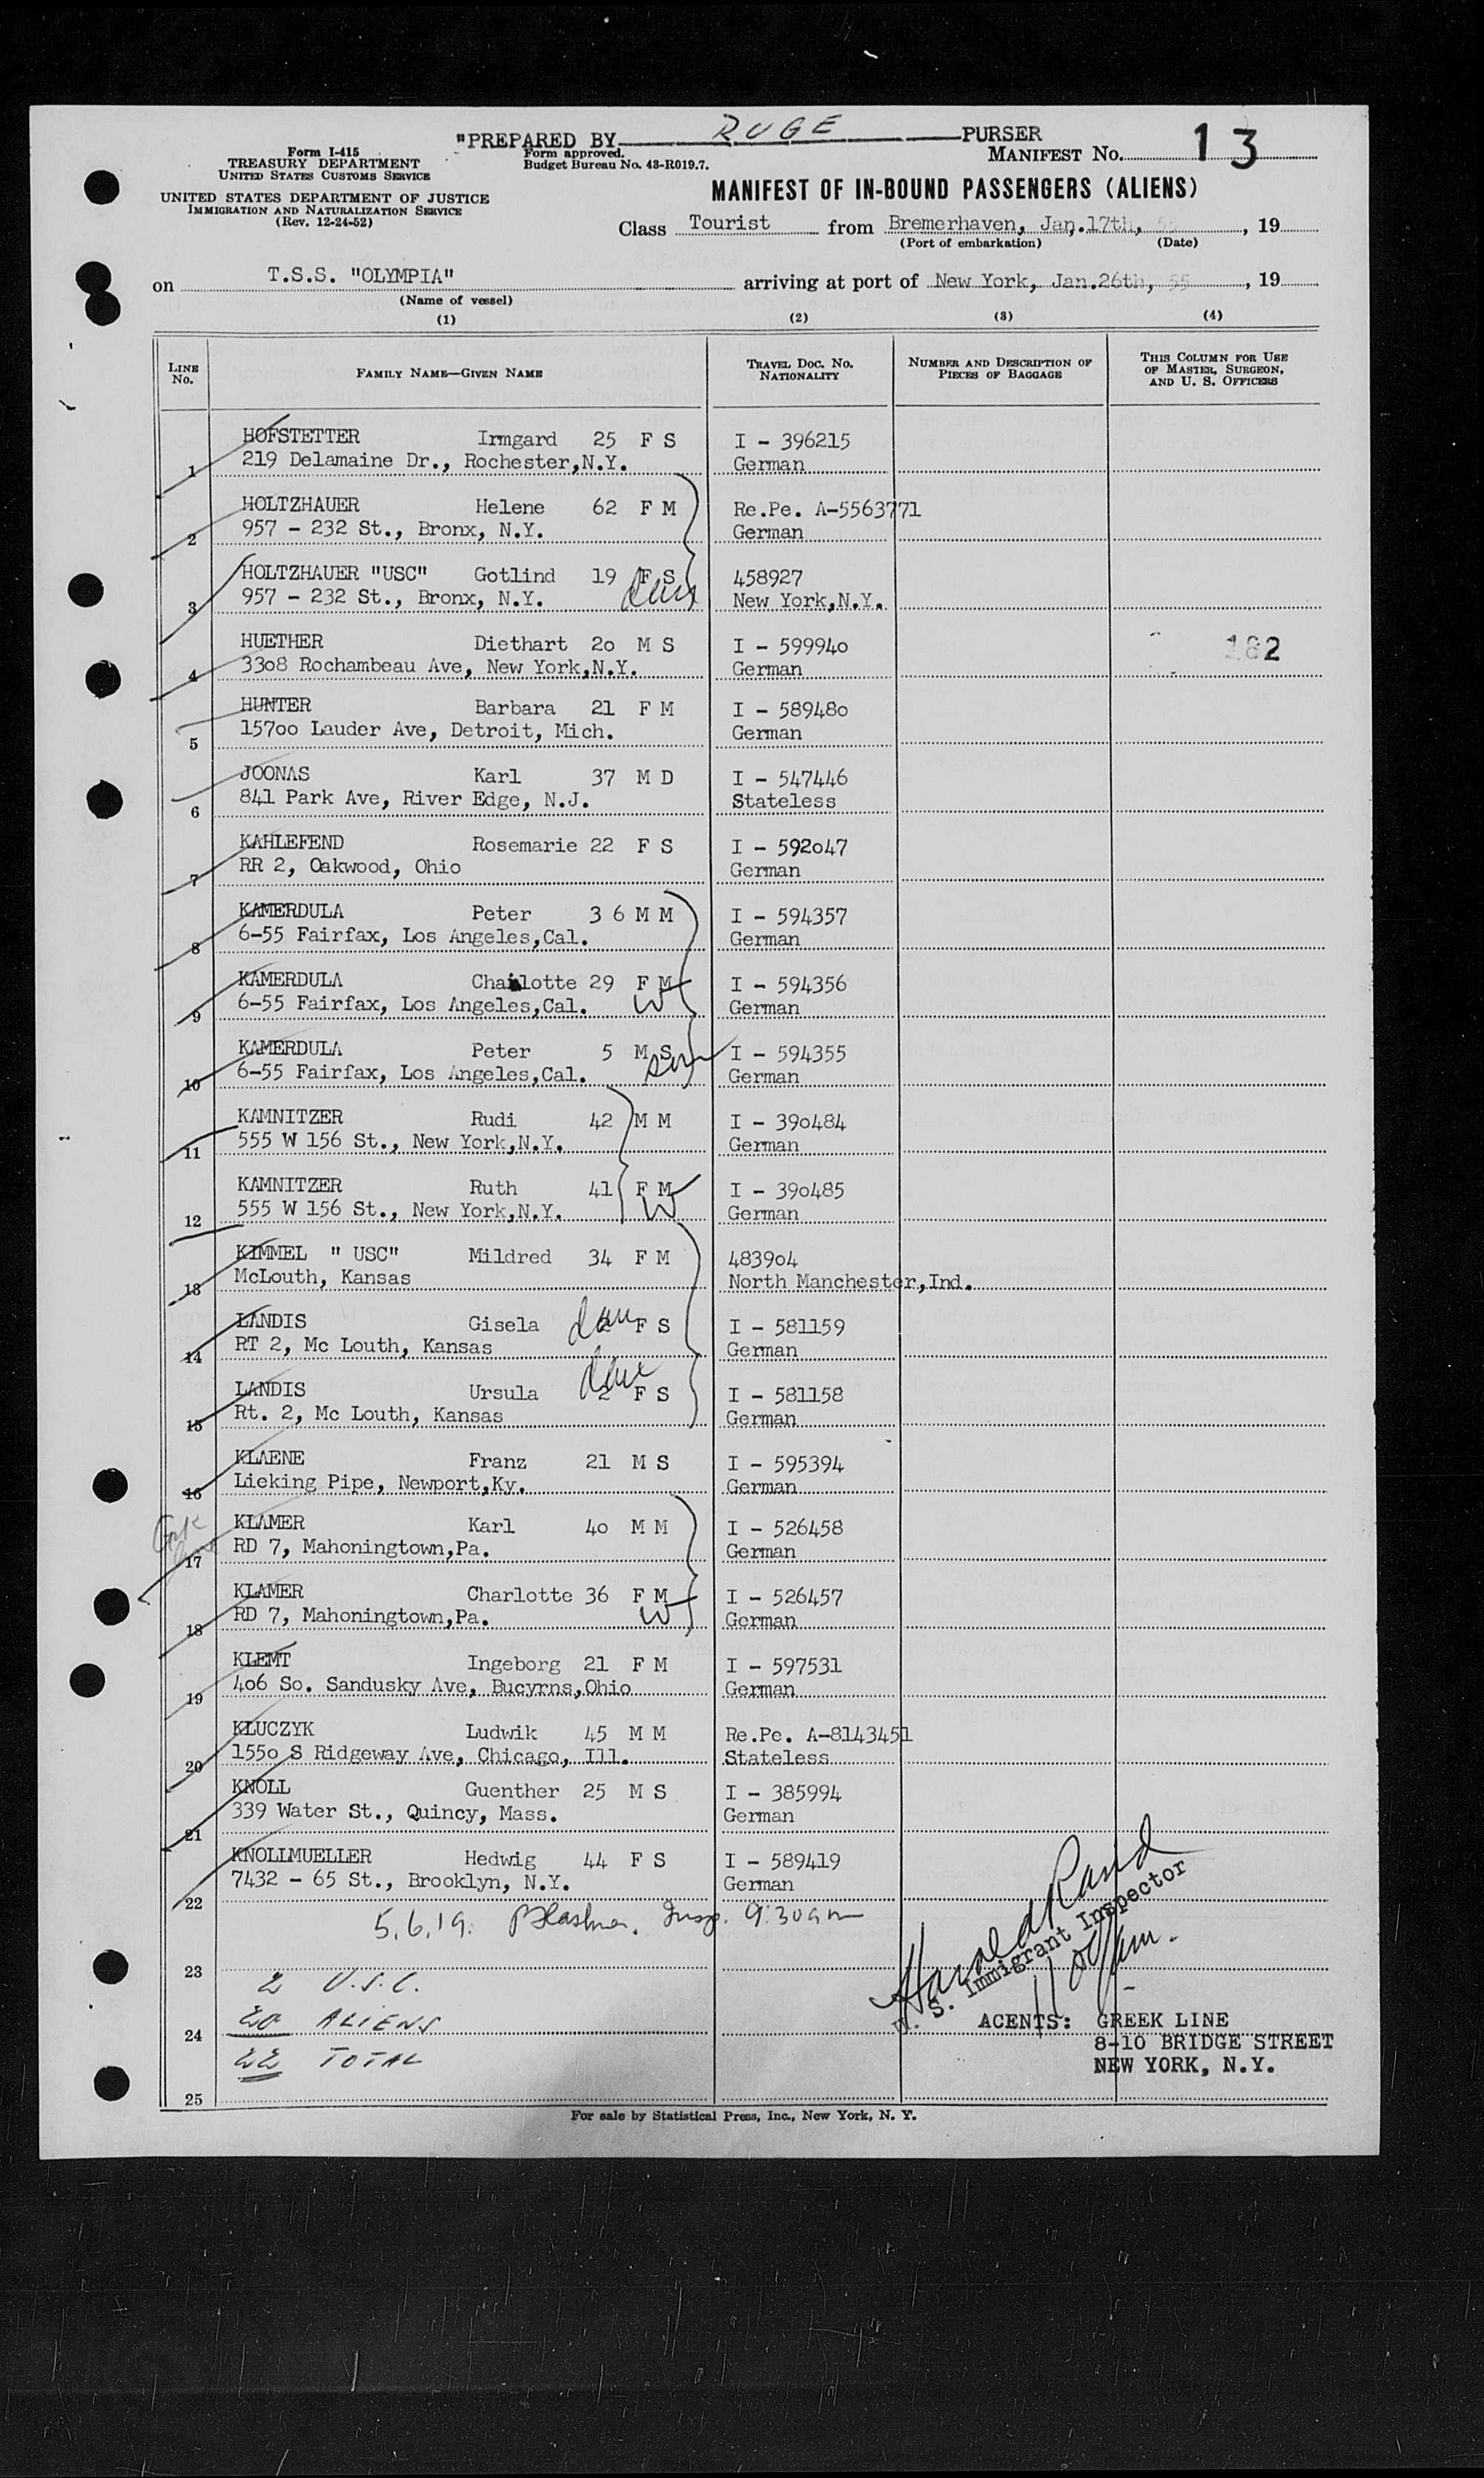 "PREPARED BY RUGE PURSER
Form I-415
TREASURY DEPARTMENT
UNITED STATES CUSTOMS SERVICE
Form approved.
Budget Bureau No. 43-R019.7.
MANIFEST No. 13
UNITED STATES DEPARTMENT OF JUSTICE
IMMIGRATION AND NATURALIZATION SERVICE
(Rev. 12-24-52)
MANIFEST OF IN-BOUND PASSENGERS (ALIENS)
Class Tourist from Bremerhaven, Jan.17th, , 19
(Port of embarkation) (Date)
on T.S.S. "OLYMPIA" arriving at port of New York, Jan.26th, 55 , 19
(Name of vessel)
(1) (2) (3) (4)
LINE No. FAMILY NAME—GIVEN NAME TRAVEL DOC. NO. NATIONALITY NUMBER AND DESCRIPTION OF PIECES OF BAGGAGE THIS COLUMN FOR USE OF MASTER, SURGEON, AND U. S. OFFICERS
HOFSTETTER Irmgard 25 F S I - 396215
1 219 Delamaine Dr., Rochester,N.Y. German
HOLTZHAUER Helene 62 F M Re.Pe. A-5563771
2 957 - 232 St., Bronx, N.Y. German
HOLTZHAUER "USC" Gotlind 19 F S 458927
3 957 - 232 St., Bronx, N.Y. New York,N.Y.
HUETHER Diethart 2o M S I - 59994o 182
4 33o8 Rochambeau Ave, New York,N.Y. German
HUNTER Barbara 21 F M I - 58948o
5 157oo Lauder Ave, Detroit, Mich. German
JOONAS Karl 37 M D I - 547446
6 841 Park Ave, River Edge, N.J. Stateless
KAHLEFEND Rosemarie 22 F S I - 592o47
7 RR 2, Oakwood, Ohio German
KAMERDULA Peter 3 6 M M I - 594357
8 6-55 Fairfax, Los Angeles,Cal. German
KAMERDULA Charlotte 29 F M I - 594356
W
9 6-55 Fairfax, Los Angeles,Cal. German
KAMERDULA Peter 5 M S I - 594355
son
10 6-55 Fairfax, Los Angeles,Cal. German
KAMNITZER Rudi 42 M M I - 39o484
11 555 W 156 St., New York,N.Y. German
KAMNITZER Ruth 41 F M I - 39o485
W
12 555 W 156 St., New York,N.Y. German
KIMMEL " USC" Mildred 34 F M 4839o4
13 McLouth, Kansas North Manchester,Ind.
LANDIS Gisela 2 F S I - 581159
14 RT 2, Mc Louth, Kansas German
LANDIS Ursula 2 F S I - 581158
15 Rt. 2, Mc Louth, Kansas German
KLAENE Franz 21 M S I - 595394
16 Lieking Pipe, Newport,Ky. German
KLAMER Karl 4o M M I - 526458
17 RD 7, Mahoningtown,Pa. German
KLAMER Charlotte 36 F M I - 526457
W
18 RD 7, Mahoningtown,Pa. German
KLEMT Ingeborg 21 F M I - 597531
19 4o6 So. Sandusky Ave, Bucyrns,Ohio German
KLUCZYK Ludwik 45 M M Re.Pe. A-8143451
20 155o S Ridgeway Ave, Chicago, Ill. Stateless
KNOLL Guenther 25 M S I - 385994
21 339 Water St., Quincy, Mass. German
KNOLLMUELLER Hedwig 44 F S I - 589419
22 7432 - 65 St., Brooklyn, N.Y. German
5.6.19. Insp. 9:30am
Harold Rand
U. S. Immigrant Inspector
23 2 U.S.C.
24 20 ALIENS
22 TOTAL
25
AGENTS: GREEK LINE
8-10 BRIDGE STREET
NEW YORK, N.Y.
For sale by Statistical Press, Inc., New York, N. Y.